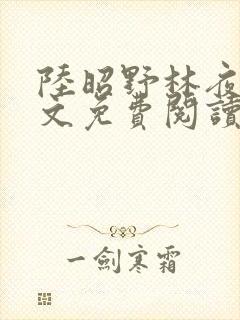 陸昭野林夜
文免費閱讀
一劍寒霜